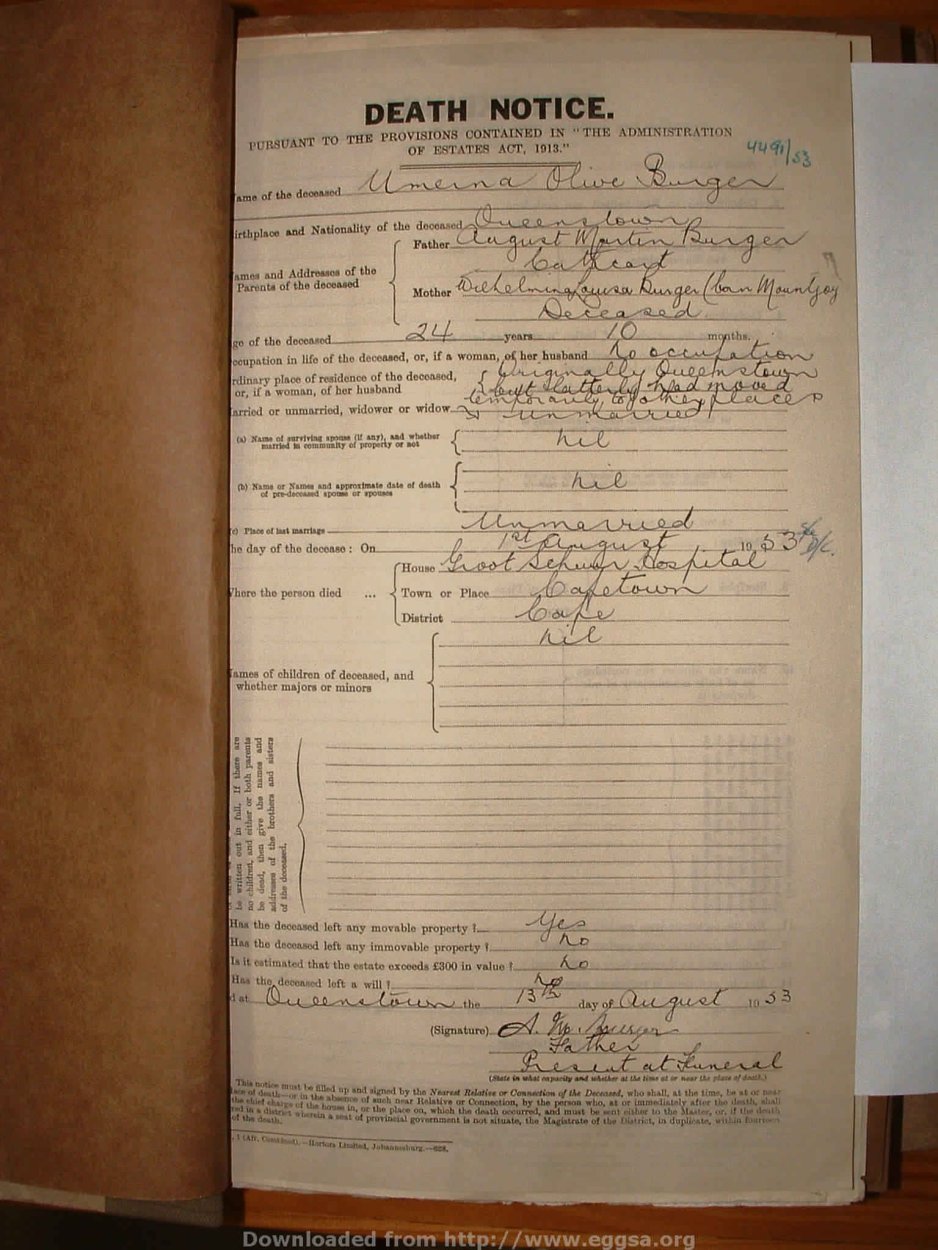 DEATH NOTICE.
PURSUANT TO THE PROVISIONS CONTAINED IN "THE ADMINISTRATION
OF ESTATES ACT, 1913."
4491/53
ame of the deceased Umerna Olive Burger
irthplace and Nationality of the deceased Queenstown
ames and Addresses of the
Parents of the deceased
Father August Martin Burger
Cathcart
Mother Wilhelmina Louisa Burger (born Mountjoy
Deceased
ge of the deceased 24 years 10 months.
ccupation in life of the deceased, or, if a woman, of her husband No occupation
rdinary place of residence of the deceased,
or, if a woman, of her husband
Originally Queenstown
but latterly had moved
temporarily to other places
arried or unmarried, widower or widow unmarried
(a) Name of surviving spouse (if any), and whether
married in community of property or not
nil
(b) Name or Names and approximate date of death
of pre-deceased spouse or spouses
nil
(c) Place of last marriage Unmarried
he day of the decease: On 1st August 1953
here the person died ...
House Groot Schuur Hospital
Town or Place Capetown
District Cape
ames of children of deceased, and
whether majors or minors
nil
be written out in full. If there are
no children, and either or both parents
be dead, then give the names and
addresses of the brothers and sisters
of the deceased.
Has the deceased left any movable property ? Yes
Has the deceased left any immovable property ? No
Is it estimated that the estate exceeds £300 in value ? No
Has the deceased left a will ? No
d at Queenstown the 13th day of August 1953
(Signature) A. M. Burger
Father
Present at Funeral
(State in what capacity and whether at the time at or near the place of death.)
This notice must be filled up and signed by the Nearest Relative or Connection of the Deceased, who shall, at the time, be at or near
ace of death—or in the absence of such near Relative or Connection, by the person who, at or immediately after the death, shall
the chief charge of the house in, or the place on, which the death occurred, and must be sent either to the Master, or, if the death
red in a district wherein a seat of provincial government is not situate, the Magistrate of the District, in duplicate, within fourteen
of the death.
. 1 (Aff. Combined).—Hortors Limited, Johannesburg.
Downloaded from http://www.eggsa.org